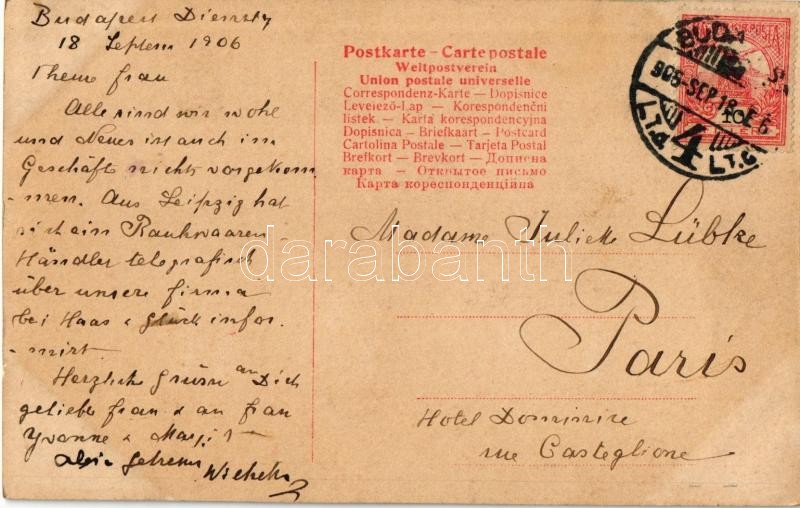 Budapest Dienstg
18 Septem 1906
Theure Frau
Alle sind wir wohl
und Neues ist auch im
Geschäft nichts vorgekom
men. Aus Leipzig hat
sich ein Rauhwaaren-
Händler telegrafisch
über unsere Firma
bei Haas & Glück infor.
- mirt.
Herzliche Grüsse an Dich
geliebte Frau & an Frau
Yvonne & Margit
dein getreuer
Wilhelm
Postkarte – Carte postale
Weltpostverein
Union postale universelle
Correspondenz-Karte – Dopisnice
Levelező-Lap – Korespondenční
lístek – Karta korespondencyjna
Dopisnica – Briefkaart – Postcard
Cartolina Postale – Tarjeta Postal
Brefkort – Brevkort – Дописна
карта – Открытое письмо
Карта кореспонденцiйна
BUDA
906 SEP 18
4
10
Madame Juliette Lübke
Paris
Hotel Dominice
rue Casteglione
darabanth